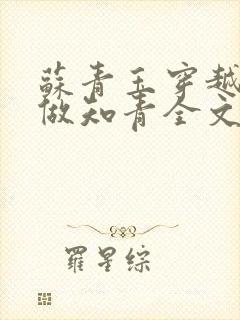 蘇青玉穿越
做知青全文
羅星綜